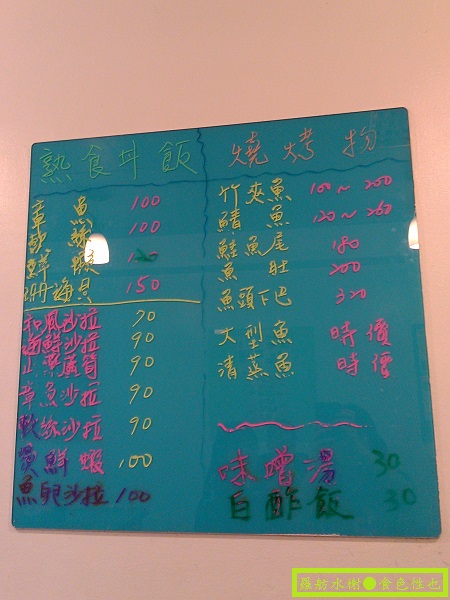 熟食丼飯
章魚 100
鮭鮪 100
草蝦 120
珊瑚貝 150
和風沙拉 70
海鮮沙拉 90
山藥蘆筍 90
章魚沙拉 90
軟絲沙拉 90
燙鮮蝦 100
魚卵沙拉 100
燒烤物
竹夾魚 100~200
鯖魚 120~260
鮭魚尾 180
魚肚 200
魚頭下巴 320
大型魚 時價
清蒸魚 時價
味噌湯 30
白酢飯 30
食色性也